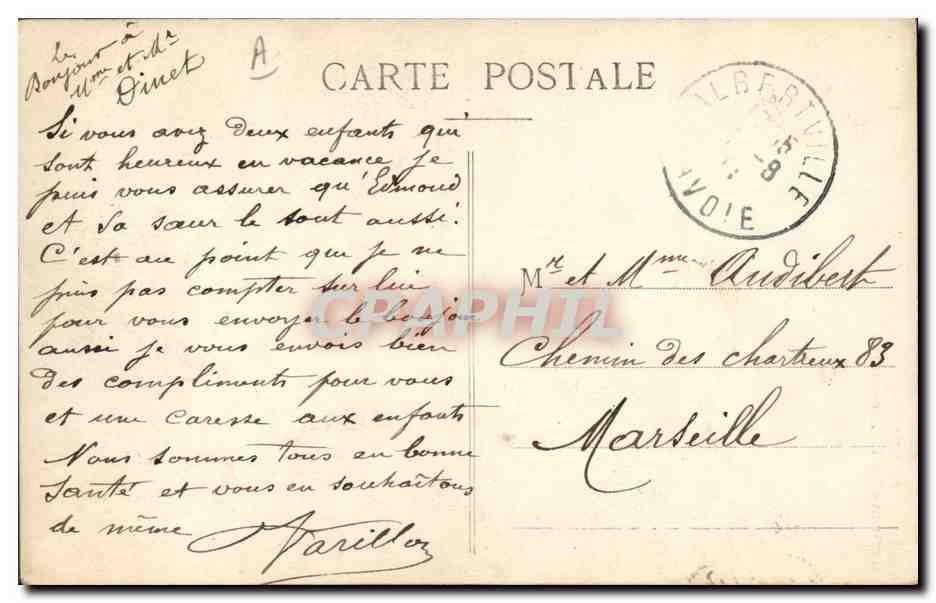 Le
Bonjour à
Mme et Mr
Dinet
A
CARTE POSTALE
ALBERTVILLE
15 -8
SAVOIE
Si vous avez deux enfants qui
sont heureux en vacance je
puis vous assurer qu'Edmond
et sa sœur le sont aussi.
C'est au point que je ne
puis pas compter sur lui
pour vous envoyer le bonjour
aussi je vous envois bien
des compliments pour vous
et une caresse aux enfants
Nous sommes tous en bonne
santé et vous en souhaitons
de même
Varillon
Mr et Mme Audibert
Chemin des chartreux 83
Marseille
CPAPHIL